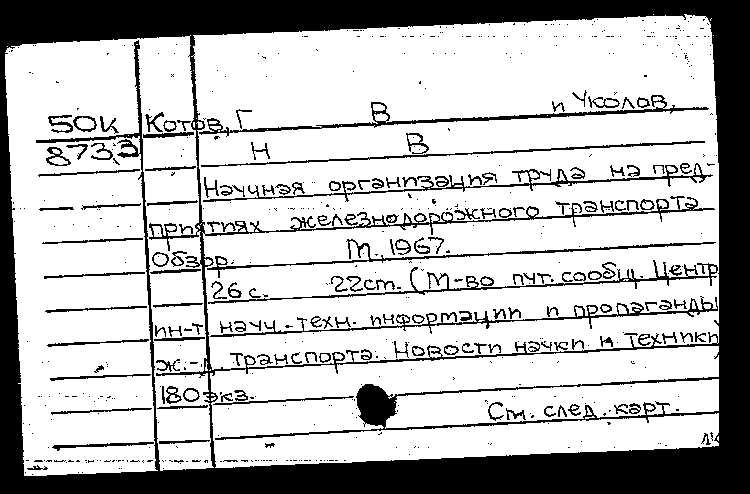 50к Котов, Г В и Уколов,
8732 Н В
Научная организация труда на пред-
приятиях железнодорожного транспорта
Обзор. М., 1967.
26 с. 22см. (М-во пут. сообщ. Центр
ин-т науч.-техн. информации и пропаганды
ж.-д. транспорта. Новости науки и техники
180 экз.
См. след. карт.